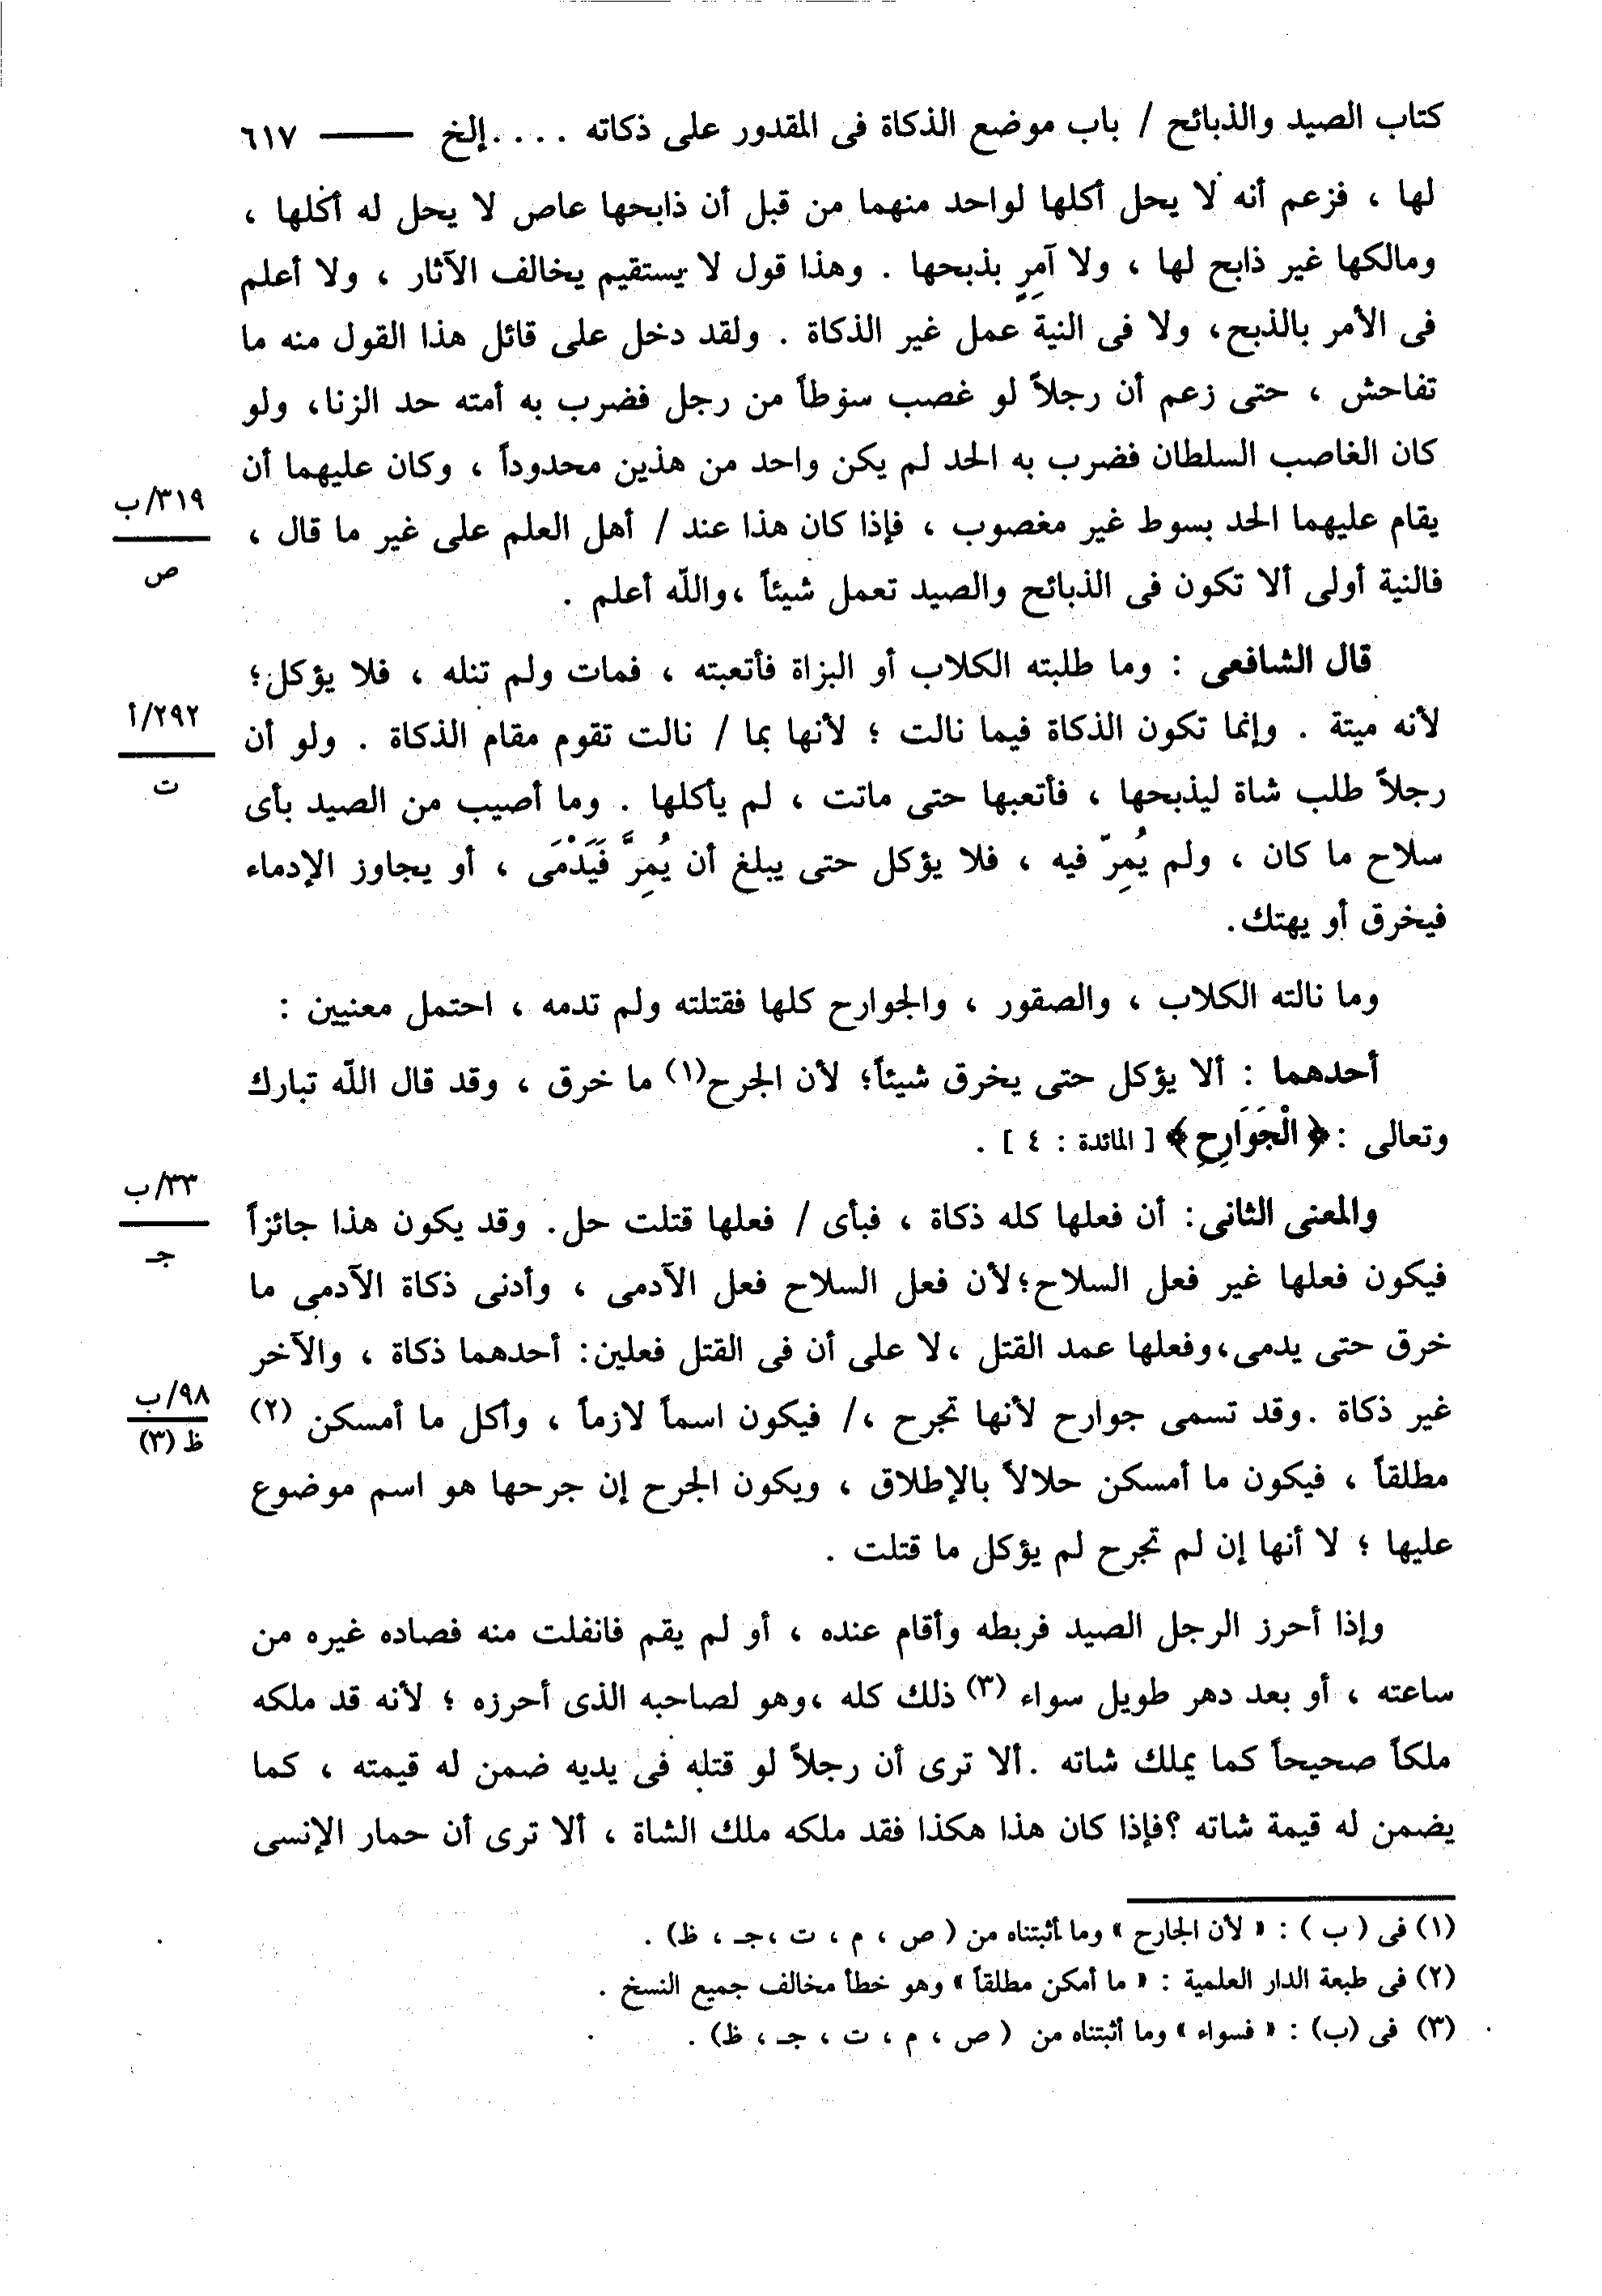 كتاب الصيد والذبائح / باب موضع الذكاة فى المقدور على ذكاته . . . .إلخ ——— ٦١٧
لها ، فزعم أنه لا يحل أكلها لواحد منهما من قبل أن ذابحها عاص لا يحل له أكلها ،
ومالكها غير ذابح لها ، ولا آمِرٍ بذبحها . وهذا قول لا يستقيم يخالف الآثار ، ولا أعلم
فى الأمر بالذبح، ولا فى النية عمل غير الذكاة . ولقد دخل على قائل هذا القول منه ما
تفاحش ، حتى زعم أن رجلاً لو غصب سوْطاً من رجل فضرب به أمته حد الزنا، ولو
كان الغاصب السلطان فضرب به الحد لم يكن واحد من هذين محدوداً ، وكان عليهما أن
يقام عليهما الحد بسوط غير مغصوب ، فإذا كان هذا عند / أهل العلم على غير ما قال ،
٣١٩/ب
ص
فالنية أولى ألا تكون فى الذبائح والصيد تعمل شيئاً ،والله أعلم .
قال الشافعى : وما طلبته الكلاب أو البزاة فأتعبته ، فمات ولم تنله ، فلا يؤكل؛
لأنه ميتة . وإنما تكون الذكاة فيما نالت ؛ لأنها بما / نالت تقوم مقام الذكاة . ولو أن
٢٩٢/أ
ت
رجلاً طلب شاة ليذبحها ، فأتعبها حتى ماتت ، لم يأكلها . وما أصيب من الصيد بأى
سلاح ما كان ، ولم يُمِرّ فيه ، فلا يؤكل حتى يبلغ أن يُمِرَّ فَيَدْمَى ، أو يجاوز الإدماء
فيخرق أو يهتك.
وما نالته الكلاب ، والصقور ، والجوارح كلها فقتلته ولم تدمه ، احتمل معنيين :
أحدهما : ألا يؤكل حتى يخرق شيئاً؛ لأن الجرح(١) ما خرق ، وقد قال الله تبارك
وتعالى :﴿ الْجَوَارِحِ﴾ [ المائدة : ٤ ] .
والمعنى الثانى: أن فعلها كله ذكاة ، فبأى / فعلها قتلت حل. وقد يكون هذا جائزاً
٣٣/ب
جـ
فيكون فعلها غير فعل السلاح؛لأن فعل السلاح فعل الآدمى ، وأدنى ذكاة الآدمى ما
خرق حتى يدمى،وفعلها عمد القتل ،لا على أن فى القتل فعلين: أحدهما ذكاة ، والآخر
غير ذكاة .وقد تسمى جوارح لأنها تجرح ،/ فيكون اسماً لازماً ، وأكل ما أمسكن (٢)
٩٨/ب
ظ (٣)
مطلقاً ، فيكون ما أمسكن حلالاً بالإطلاق ، ويكون الجرح إن جرحها هو اسم موضوع
عليها ؛ لا أنها إن لم تجرح لم يؤكل ما قتلت .
وإذا أحرز الرجل الصيد فربطه وأقام عنده ، أو لم يقم فانفلت منه فصاده غيره من
ساعته ، أو بعد دهر طويل سواء (٣) ذلك كله ،وهو لصاحبه الذى أحرزه ؛ لأنه قد ملكه
ملكاً صحيحاً كما يملك شاته .ألا ترى أن رجلاً لو قتله فى يديه ضمن له قيمته ، كما
يضمن له قيمة شاته ؟فإذا كان هذا هكذا فقد ملكه ملك الشاة ، ألا ترى أن حمار الإنسى
(١) فى ( ب ) : « لأن الجارح » وما أثبتناه من ( ص ، م ، ت ،جـ ، ظ) .
(٢) فى طبعة الدار العلمية : « ما أمكن مطلقاً » وهو خطأ مخالف جميع النسخ .
(٣) فى (ب) : « فسواء » وما أثبتناه من ( ص ، م ، ت ، جـ ، ظ) .